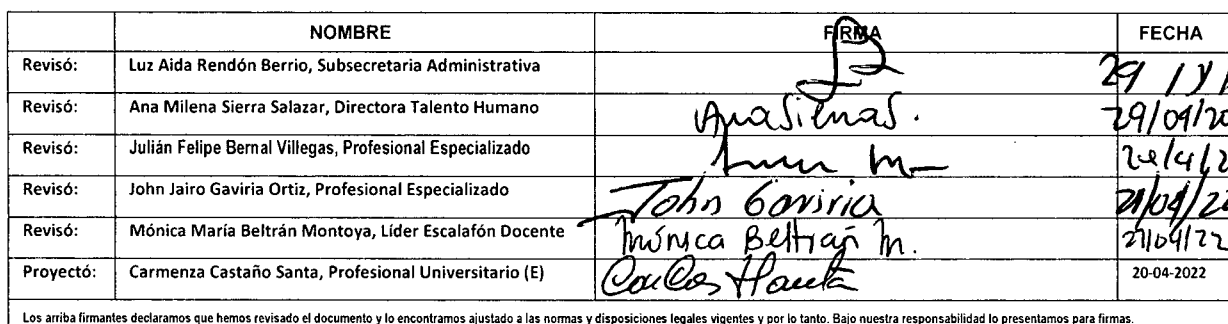 NOMBRE FIRMA FECHA
Revisó: Luz Aida Rendón Berrio, Subsecretaria Administrativa
Revisó: Ana Milena Sierra Salazar, Directora Talento Humano AnaSierraS. 29/04/20
Revisó: Julián Felipe Bernal Villegas, Profesional Especializado
Revisó: John Jairo Gaviria Ortiz, Profesional Especializado John Gaviria
Revisó: Mónica María Beltrán Montoya, Líder Escalafón Docente Mónica Beltrán M. 21/04/22
Proyectó: Carmenza Castaño Santa, Profesional Universitario (E) 20-04-2022
Los arriba firmantes declaramos que hemos revisado el documento y lo encontramos ajustado a las normas y disposiciones legales vigentes y por lo tanto. Bajo nuestra responsabilidad lo presentamos para firmas.